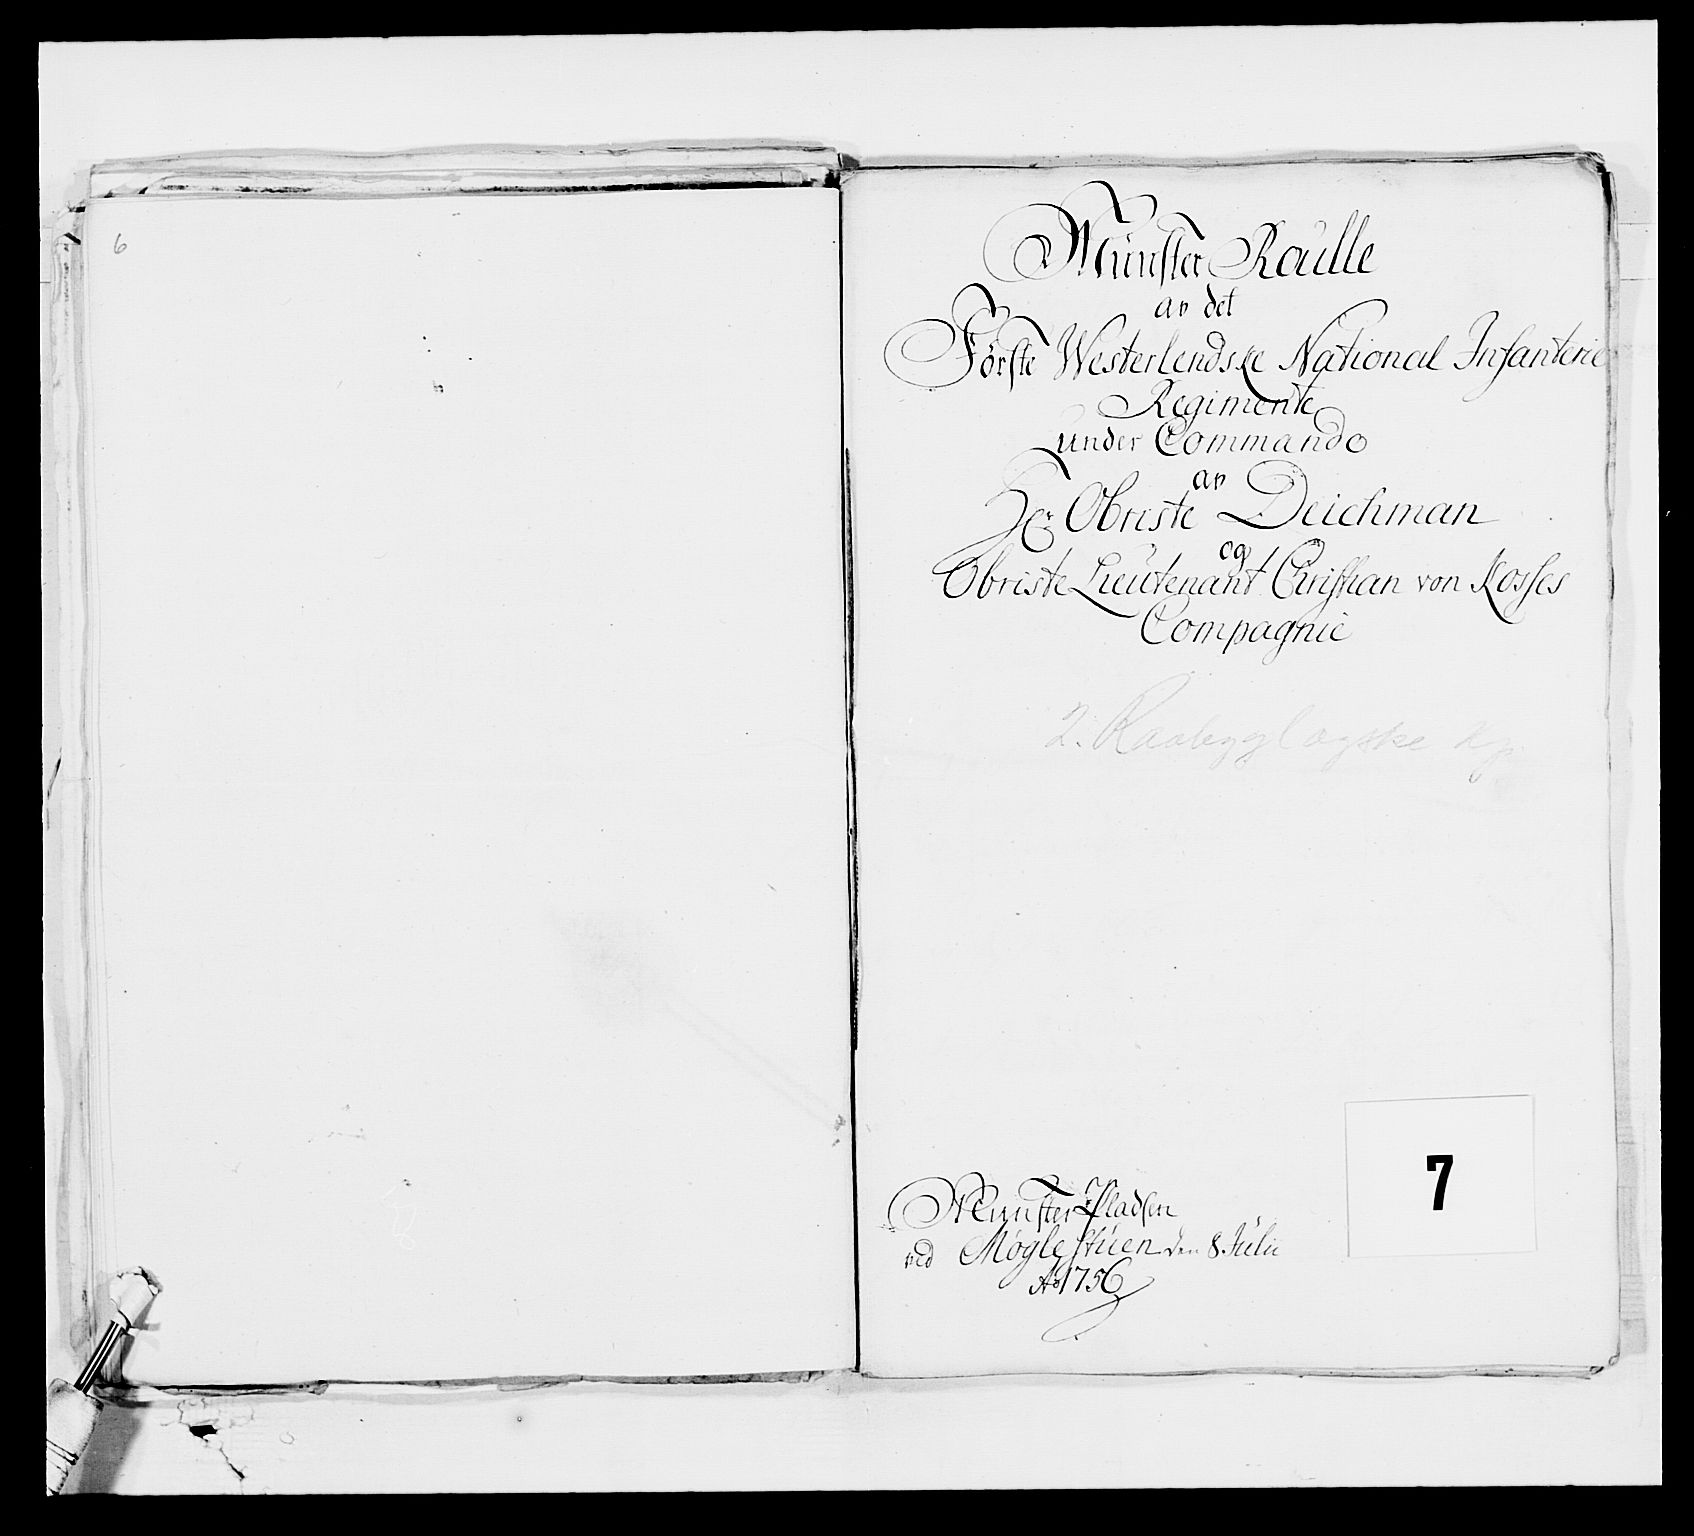 6
Münster Roulle
av det
Förste Westerlendske National Infanterie
Regimente
under Commando
av
Hr. Obriste Deichman
og
Obriste Lieutenant Christian von Kosses
Compagnie
2. Raabyglagske Kp.
Münster Pladsen
ved Möglestüen den 8. Julii
Ao 1756
7